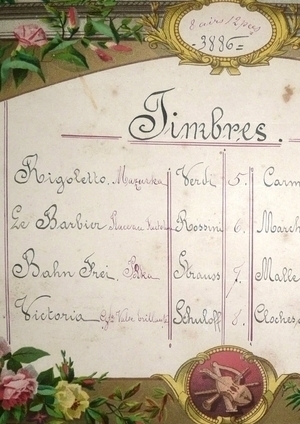 8 airs 12 pcg
-3886-
Timbres.
Rigoletto, Mazurka Verdi 5. Carm
Le Barbier Rossini 6. March
Bahn Frei, Polka Strauss 7. Malle
Victoria Gde Valse brillante Schuloff 8. Cloches